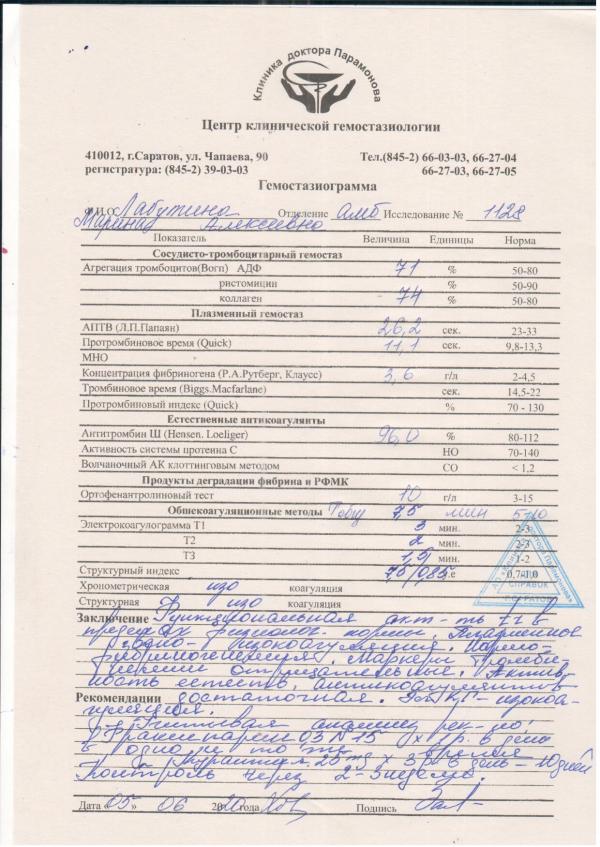 Клиника доктора Парамонова
Центр клинической гемостазиологии
410012, г.Саратов, ул. Чапаева, 90 Тел.(845-2) 66-03-03, 66-27-04
регистратура: (845-2) 39-03-03 66-27-03, 66-27-05
Гемостазиограмма
Ф.И.О. Лабутина Отделение амб Исследование № 1128
Марина Алексеевна
Показатель Величина Единицы Норма
Сосудисто-тромбоцитарный гемостаз
Агрегация тромбоцитов(Born) АДФ 71 % 50-80
ристомицин % 50-90
коллаген 74 % 50-80
Плазменный гемостаз
АПТВ (Л.П.Папаян) 26,2 сек. 23-33
Протромбиновое время (Quick) 11,1 сек. 9,8-13,3
МНО
Концентрация фибриногена (Р.А.Рутберг, Клаусс) 3,6 г/л 2-4,5
Тромбиновое время (Biggs.Macfarlane) сек. 14,5-22
Протромбиновый индекс (Quick) % 70 - 130
Естественные антикоагулянты
Антитромбин Ш (Hensen. Loeliger) 96,0 % 80-112
Активность системы протеина С НО 70-140
Волчаночный АК клоттинговым методом СО < 1,2
Продукты деградации фибрина и РФМК
Ортофенантролиновый тест 10 г/л 3-15
Общекоагуляционные методы 7,5 мин 5-10
Электрокоагулограмма Т1 3 мин. 2-3
Т2 2 мин. 2-3
Т3 1,5 мин. 1-2
Структурный индекс 0,85 у.е 0,7-1,0
Хронометрическая изо коагуляция
Структурная изо коагуляция
Заключение Функциональная акт-ть Тг в
пределах физиолог. нормы. Плазменное
звено - изокоагуляция. Нормо-
фибриногенемия. Маркеры тромби-
немии отрицательные. Актив-
ность естеств. антикоагулянтов
Рекомендации достаточная. - изокоа-
гуляция.
Учитывая анамнез рек-но:
Фраксипарин 0,3 N 15 1 р. в день
в одно и то же время
Курантил 25 mg x 3 р в день - 10 дней
Контроль через 2-3 недели.
Дата «05» 06 2010 года Подпись